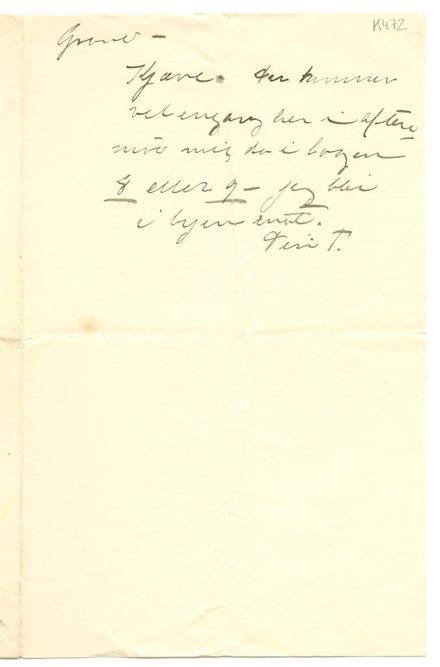 K472
Grand –
Kjære. Du kommer
vel engang her i aften
mig da i logen
8 eller 9 – jeg blir
i byen inat.
Din T.